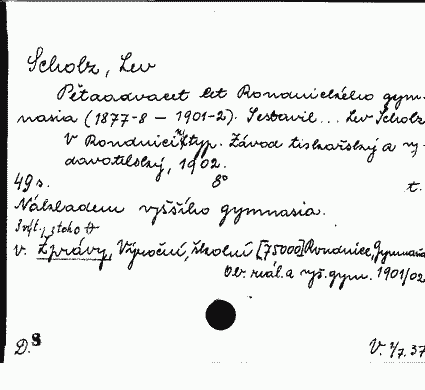 Scholz, Lev
Pětaadvacet let Roudnického gym-
nasia (1877-8 — 1901-2). Sestavil... Lev Scholz
V Roudnici, typ. Závod tiskařský a vy-
davatelský, 1902.
49 s. 8° t.
Nákladem vyššího gymnasia.
v. Zprávy, Výroční, školní [75000] Roudnice, Gymnasia
Ob. reál. a vyš. gym. 1901/02
D. 8 V. 2/7. 37